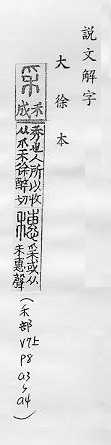 說文解字
大徐本
采
禾成
秀也人所以收
从爪禾徐醉切
穗
采或从
禾惠聲
(禾部 V7上 P8 a3~a4)